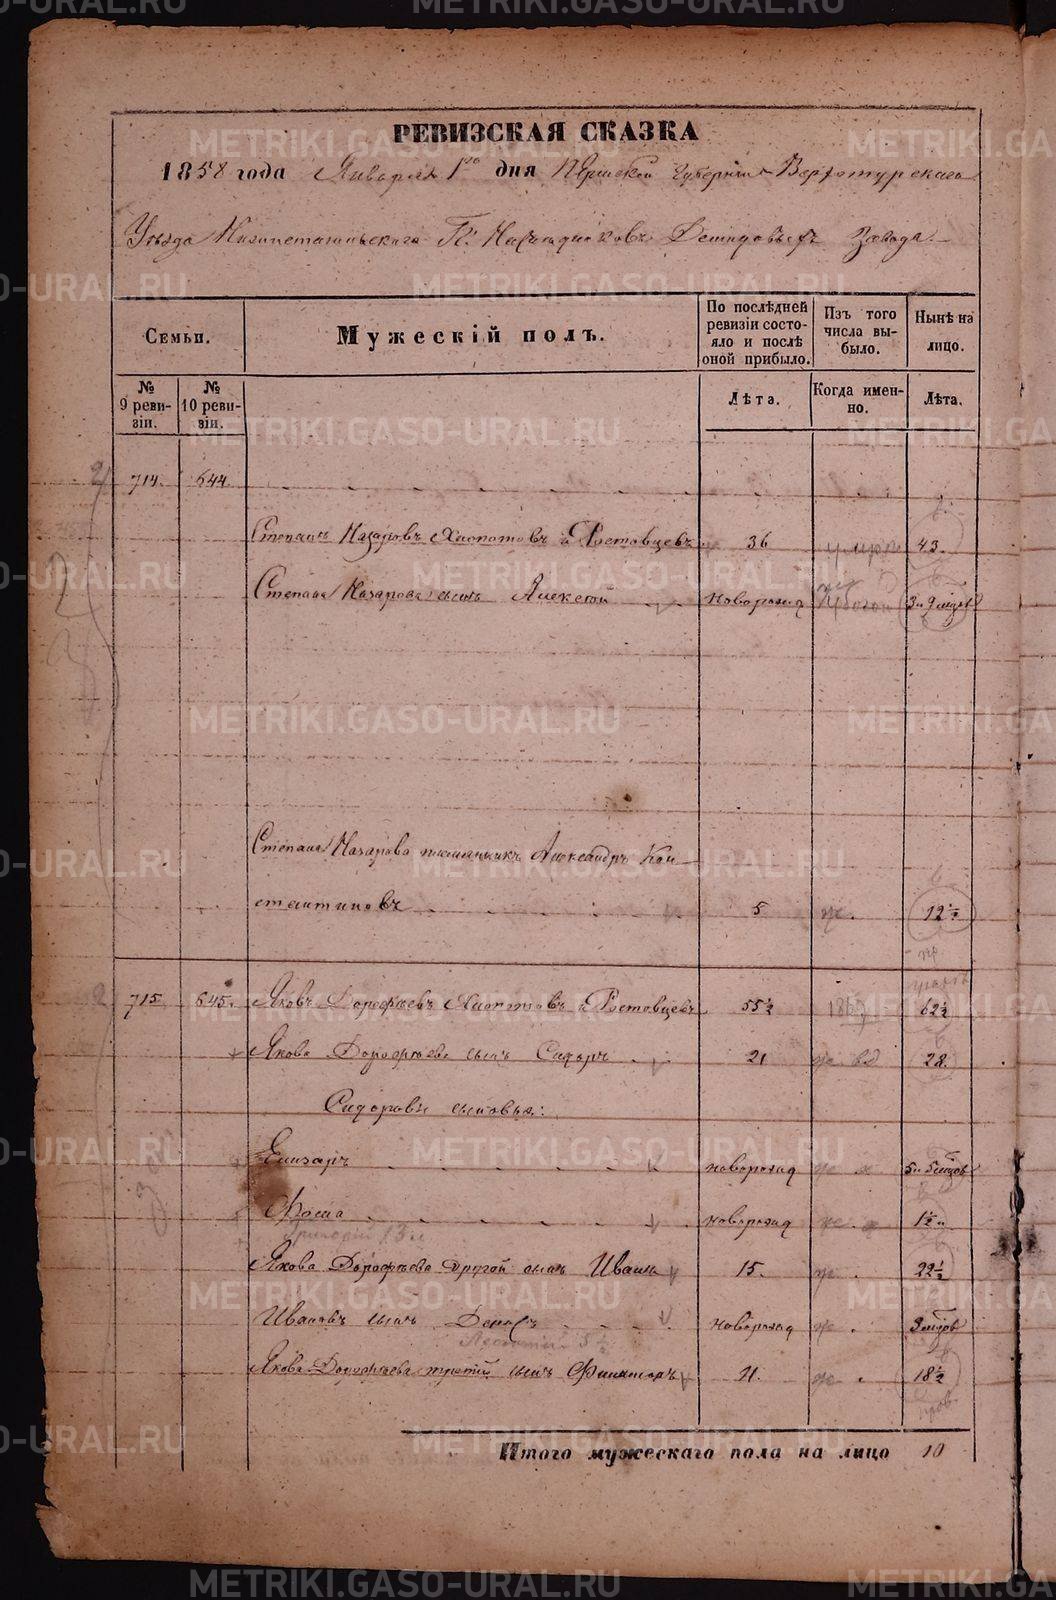 РЕВИЗСКАЯ СКАЗКА
1858 года Января 1го дня Пермской Губернии Верхотурскаго
Уѣзда Нижнетагильскаго Гг. Наслѣдниковъ Демидовыхъ Завода.
Семьи.
Мужескій полъ.
По послѣдней ревизіи состояло и послѣ оной прибыло.
Изъ того числа выбыло.
Нынѣ на лицо.
№ 9 ревизіи.
№ 10 ревизіи.
Лѣта.
Когда именно.
Лѣта.
714. 644.
Степанъ Назаровъ Хлопотовъ и Ростовцевъ 36 умеръ 43.
Степана Назарова сынъ Алексѣй новорожд 3 и 9 мцов
Степана Назарова племянникъ Александръ Кон-
стантиновъ 5 12½
715. 645. Яковъ Дорофѣевъ Хлопотовъ и Ростовцевъ 55½ 62½
Якова Дорофѣева сынъ Сидоръ 21 28.
Сидоровы сыновья:
Елизаръ новорожд 5 и 5 мцов
Фома новорожд 1½
Григорій 13
Якова Дорофѣева другой сынъ Иванъ 15. 22½
Ивановъ сынъ Денисъ новорожд
Якова Дорофѣева третій сынъ 11. 18½
Итого мужескаго пола на лицо 10
METRIKI.GASO-URAL.RU